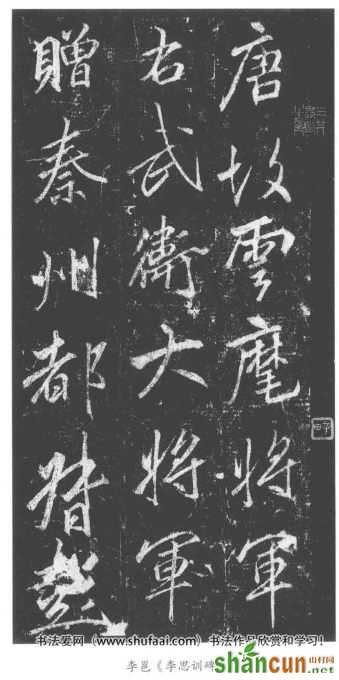 唐故雲麾將軍
右武衛大將軍
贈秦州都督
书法爱网（www.shufaai.com）书法作品欣赏和学习！
李邕《李思训碑
shancun.net
山村网